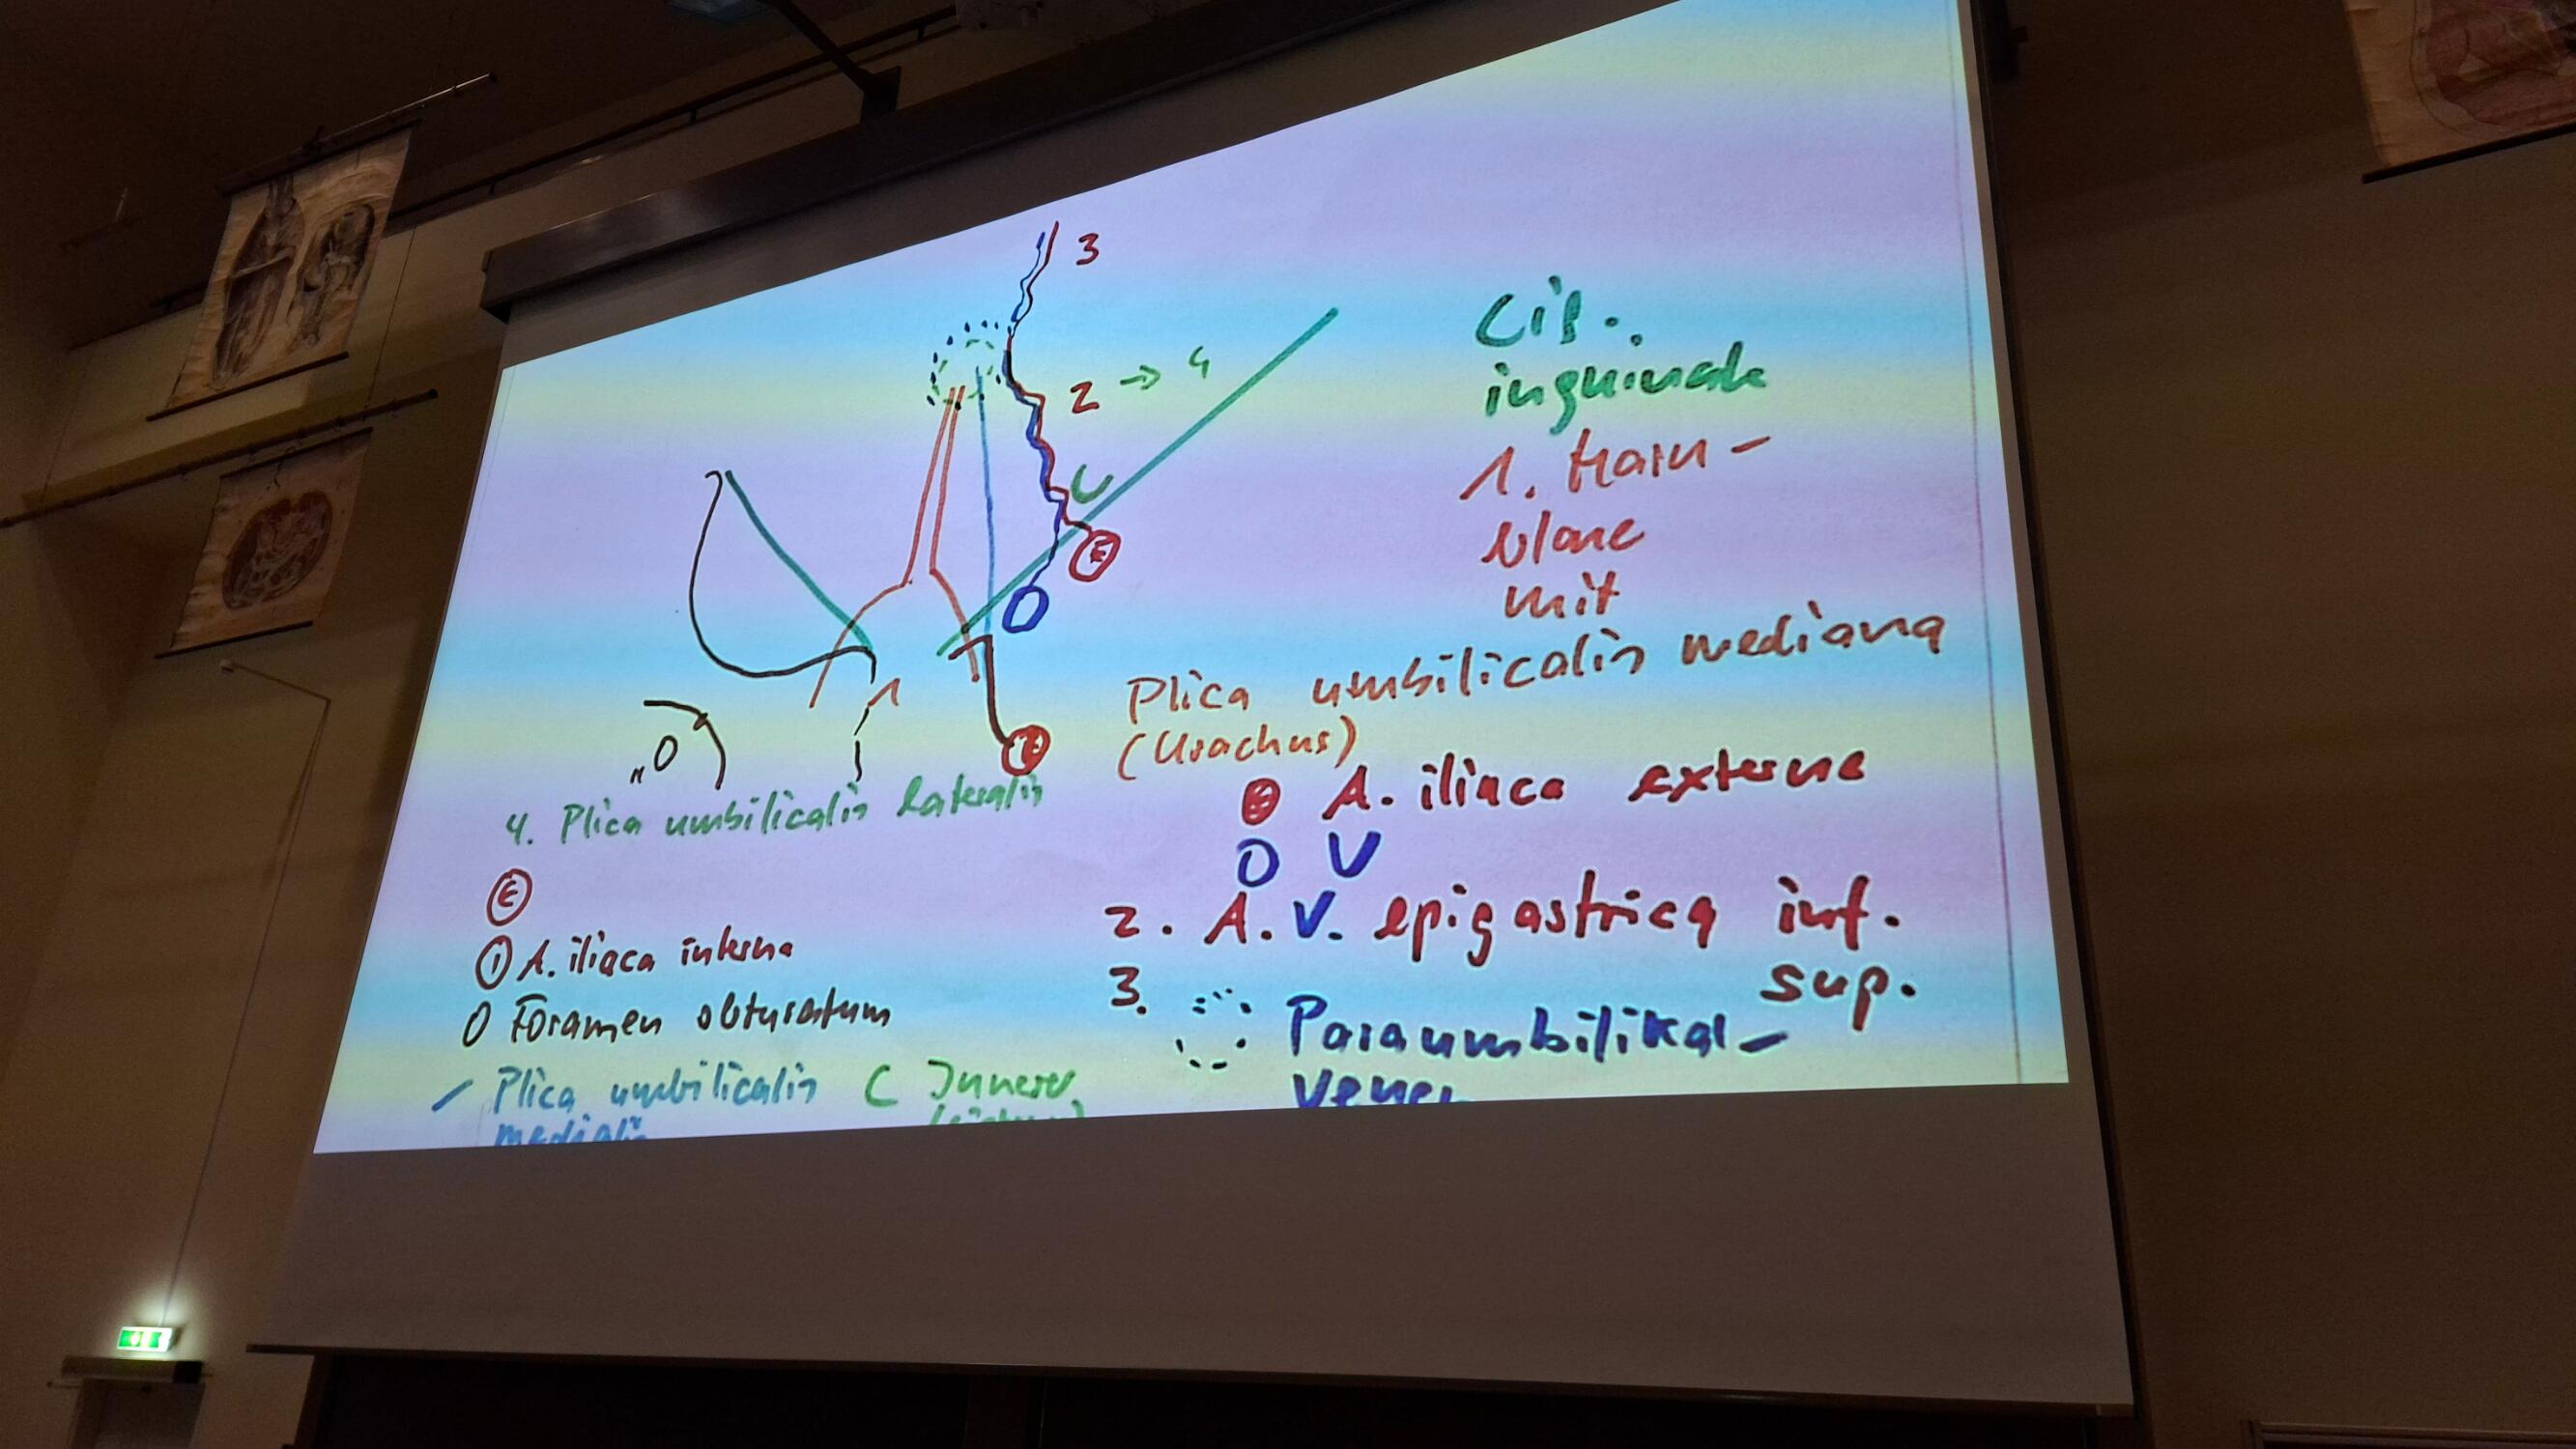 3
2 → 4
C
E
1
"O
Lig.
inguinale
1. Harn-
blase
mit
Plica umbilicalis mediana
(Urachus)
E A. iliaca externa
O V
2. A. V. epigastrica inf.
3. sup.
Paraumbilikal-
venen
4. Plica umbilicalis lateralis
E
I A. iliaca interna
O Foramen obturatum
Plica umbilicalis
medialis
C Innerer